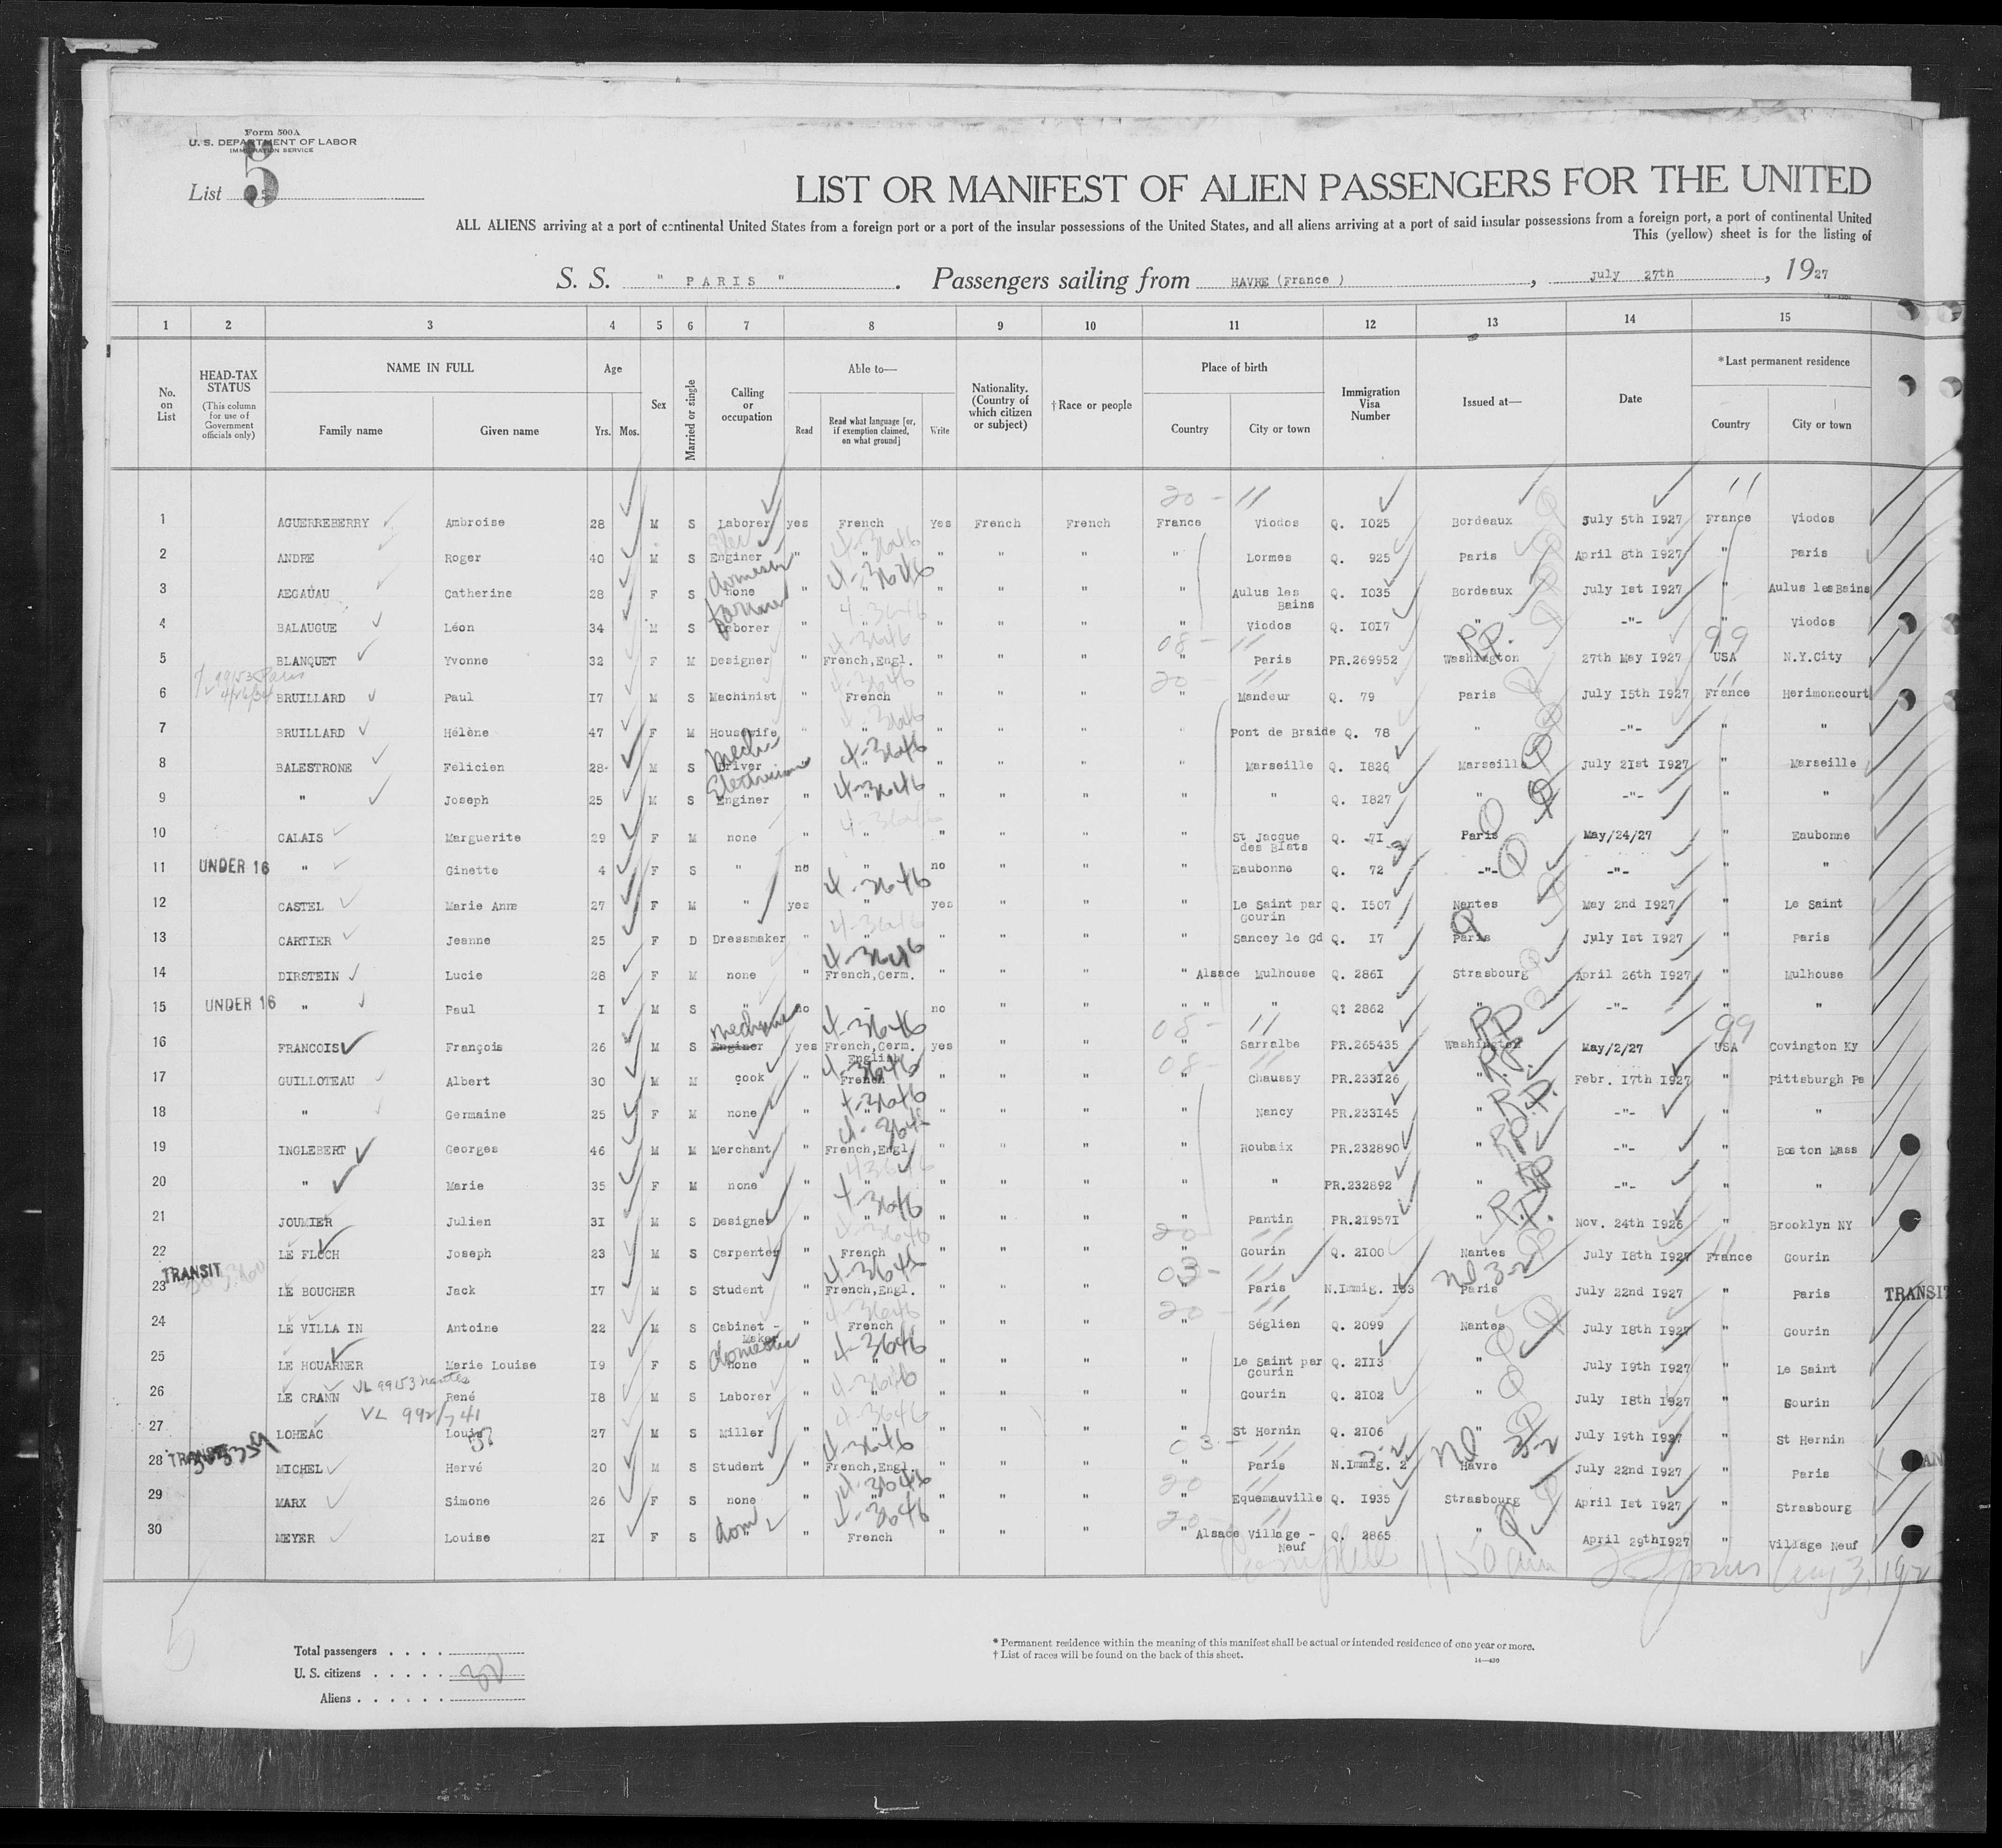 Form 500A
U. S. DEPARTMENT OF LABOR
IMMIGRATION SERVICE
List 5
LIST OR MANIFEST OF ALIEN PASSENGERS FOR THE UNITED
ALL ALIENS arriving at a port of continental United States from a foreign port or a port of the insular possessions of the United States, and all aliens arriving at a port of said insular possessions from a foreign port, a port of continental United
This (yellow) sheet is for the listing of
S. S. " PARIS " . Passengers sailing from HAVRE (France ) , July 27th , 1927
1 2 3 4 5 6 7 8 9 10 11 12 13 14 15
No. on List
HEAD-TAX STATUS (This column for use of Government officials only)
NAME IN FULL
Family name Given name
Age
Yrs. Mos.
Sex
Married or single
Calling or occupation
Able to—
Read Read what language [or, if exemption claimed, on what ground] Write
Nationality. (Country of which citizen or subject)
† Race or people
Place of birth
Country City or town
Immigration Visa Number
Issued at—
Date
* Last permanent residence
Country City or town
20 - 11 11
1 AGUERREBERRY Ambroise 28 M S Laborer yes French Yes French French France Viodos Q. 1025 Bordeaux July 5th 1927 France Viodos
4-3646
2 ANDRE Roger 40 M S Enginer " " " " " " Lormes Q. 925 Paris April 8th 1927 " Paris
domestic 4-3646
3 AEGAUAU Catherine 28 F S none " " " " " " Aulus les Bains Q. 1035 Bordeaux July 1st 1927 " Aulus les Bains
farmer 4-3646
4 BALAUGUE Léon 34 M S Laborer " " " " " " Viodos Q. 1017 " -"- " Viodos
4-3646 08 - 11 R.P. 99
5 BLANQUET Yvonne 32 F M Designer " French,Engl. " " " " Paris PR.269952 Washington 27th May 1927 USA N.Y.City
4-3646 20 - 11 11
6 BRUILLARD Paul 17 M S Machinist " French " " " " Mandeur Q. 79 Paris July 15th 1927 France Herimoncourt
7 BRUILLARD Hélène 47 F M Housewife " " " " " " Pont de Braide Q. 78 " -"- " "
Mech. 4-3646
8 BALESTRONE Felicien 28 M S Driver " " " " " " Marseille Q. 1826 Marseille July 21st 1927 " Marseille
Electrician 4-3646
9 " Joseph 25 M S Enginer " " " " " " " Q. 1827 " -"- " "
4-3646
10 CALAIS Marguerite 29 F M none " " " " " " St Jacque des Blats Q. 71 Paris May/24/27 " Eaubonne
11 UNDER 16 " Ginette 4 F S " no " no " " " Eaubonne Q. 72 -"- -"- " "
4-3646
12 CASTEL Marie Anne 27 F M " yes " yes " " " Le Saint par Gourin Q. 1507 Nantes May 2nd 1927 " Le Saint
4-3646
13 CARTIER Jeanne 25 F D Dressmaker " " " " " " Sancey le Gd Q. 17 Paris July 1st 1927 " Paris
4-3646
14 DIRSTEIN Lucie 28 F M none " French,Germ. " " " " Alsace Mulhouse Q. 2861 Strasbourg April 26th 1927 " Mulhouse
15 UNDER 16 " Paul 1 M S " no - no " " " " " Q? 2862 " -"- " "
mechanic 4-3646 08 - 11 R.P. 99
16 FRANCOIS François 26 M S Enginer yes French,Germ. English yes " " " Sarralbe PR.265435 Washington May/2/27 USA Covington Ky
4-3646 08 - 11 R.P.
17 GUILLOTEAU Albert 30 M M cook " French " " " " Chaussy PR.233126 " Febr. 17th 1927 " Pittsburgh Pa
4-3646 R.P.
18 " Germaine 25 F M none " " " " " " Nancy PR.233145 " -"- " "
R.P.
19 INGLEBERT Georges 46 M M Merchant " French,Engl. " " " " Roubaix PR.232890 " -"- " Boston Mass
43646 RP
20 " Marie 35 F M none " " " " " " " PR.232892 " -"- " "
4-3646 R.P.
21 JOUMIER Julien 31 M S Designer " " " " " " Pantin PR.219571 " Nov. 24th 1926 " Brooklyn NY
4-3646 20 11 11
22 LE FLOCH Joseph 23 M S Carpenter " French " " " " Gourin Q. 2100 Nantes July 18th 1927 France Gourin
TRANSIT 03 - 11
23 LE BOUCHER Jack 17 M S Student " French,Engl. " " " " Paris N.Immig. 133 Paris July 22nd 1927 " Paris TRANSIT
4-3646 20 - 11
24 LE VILLA IN Antoine 22 M S Cabinet - Maker " French " " " " Séglien Q. 2099 Nantes July 18th 1927 " Gourin
domestic 4-3646
25 LE HOUARNER Marie Louise 19 F S none " " " " " " Le Saint par Gourin Q. 2113 " July 19th 1927 " Le Saint
VL 99153 nantes 4-3646
26 LE CRANN René 18 M S Laborer " " " " " " Gourin Q. 2102 " July 18th 1927 " Gourin
4-3646
27 LOHEAC Louis 27 M S Miller " " " " " " St Hernin Q. 2106 " July 19th 1927 " St Hernin
TRANSIT 4-3646 03 - 11
28 MICHEL Hervé 20 M S Student " French,Engl. " " " " Paris N.Immig. 2 Havre July 22nd 1927 " Paris
4-3646 20 11
29 MARX Simone 26 F S none " " " " " " Equemauville Q. 1935 Strasbourg April 1st 1927 " Strasbourg
dom 4-3646 20 - 11
30 MEYER Louise 21 F S " " French " " " " Alsace Village - Neuf Q. 2865 " April 29th1927 " Village Neuf
1150 am
5
Total passengers . . . .
U. S. citizens . . . . . 30
Aliens . . . . . .
* Permanent residence within the meaning of this manifest shall be actual or intended residence of one year or more.
† List of races will be found on the back of this sheet.
14—430